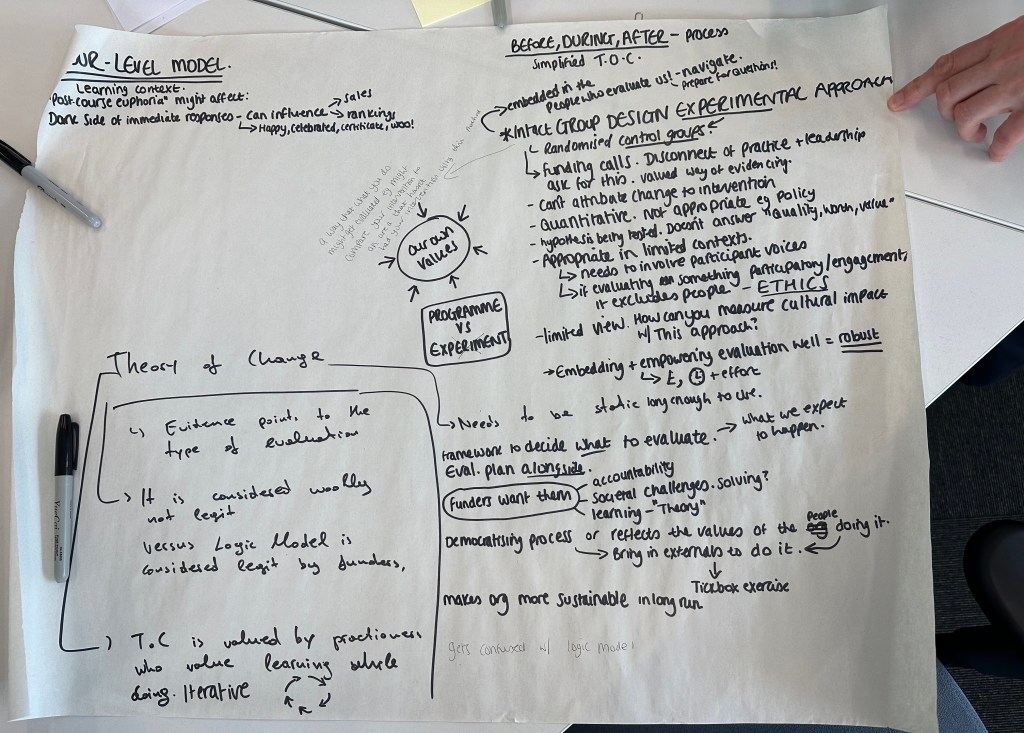 UR-LEVEL MODEL.
Learning context.
"Post-course euphoria" might affect:
Dark Side of immediate responses - can influence → sales
→ rankings
↳ Happy, celebrated, certificate, woo!
BEFORE, DURING, AFTER - process
Simplified T.O.C.
embedded in the people who evaluate us! - navigate.
prepare for questions!
*INTACT GROUP DESIGN EXPERIMENTAL APPROACH
↳ Randomised control groups?
↳ Funding calls. Disconnect of practice + leadership
ask for this. valued way of evidencing.
- can't attribute change to intervention
- Quantitative. Not appropriate eg policy
- hypothesis being tested. Doesn't answer "Quality, worth, value"
- Appropriate in limited contexts.
↳ needs to involve participant voices
↳ if evaluating something participatory/engagement,
it excludes people - ETHICS
- limited view. How can you measure cultural impact
w/ This approach?
→ Embedding + empowering evaluation well = robust
↳ £, + effort
a way that what you do
might get evaluated eg might
compare your intervention to
an area that hasn't
had your intervention using this
our own
values
PROGRAMME
VS
EXPERIMENT
Theory of Change
↳ Evidence points to the
type of evaluation
→ It is considered woolly
not legit
versus Logic Model is
considered legit by funders,
→ T.C is valued by practioners
who value learning while
doing. Iterative
→ Needs to be static long enough to use.
Framework to decide what to evaluate. → what we expect
to happen.
Eval. plan alongside.
Funders want them
accountability
societal challenges. solving?
learning - "Theory"
Democratising process or reflects the values of the people doing it.
→ Bring in externals to do it.
↓
Tickbox exercise
makes org more sustainable in long run
gets confused w/ logic model